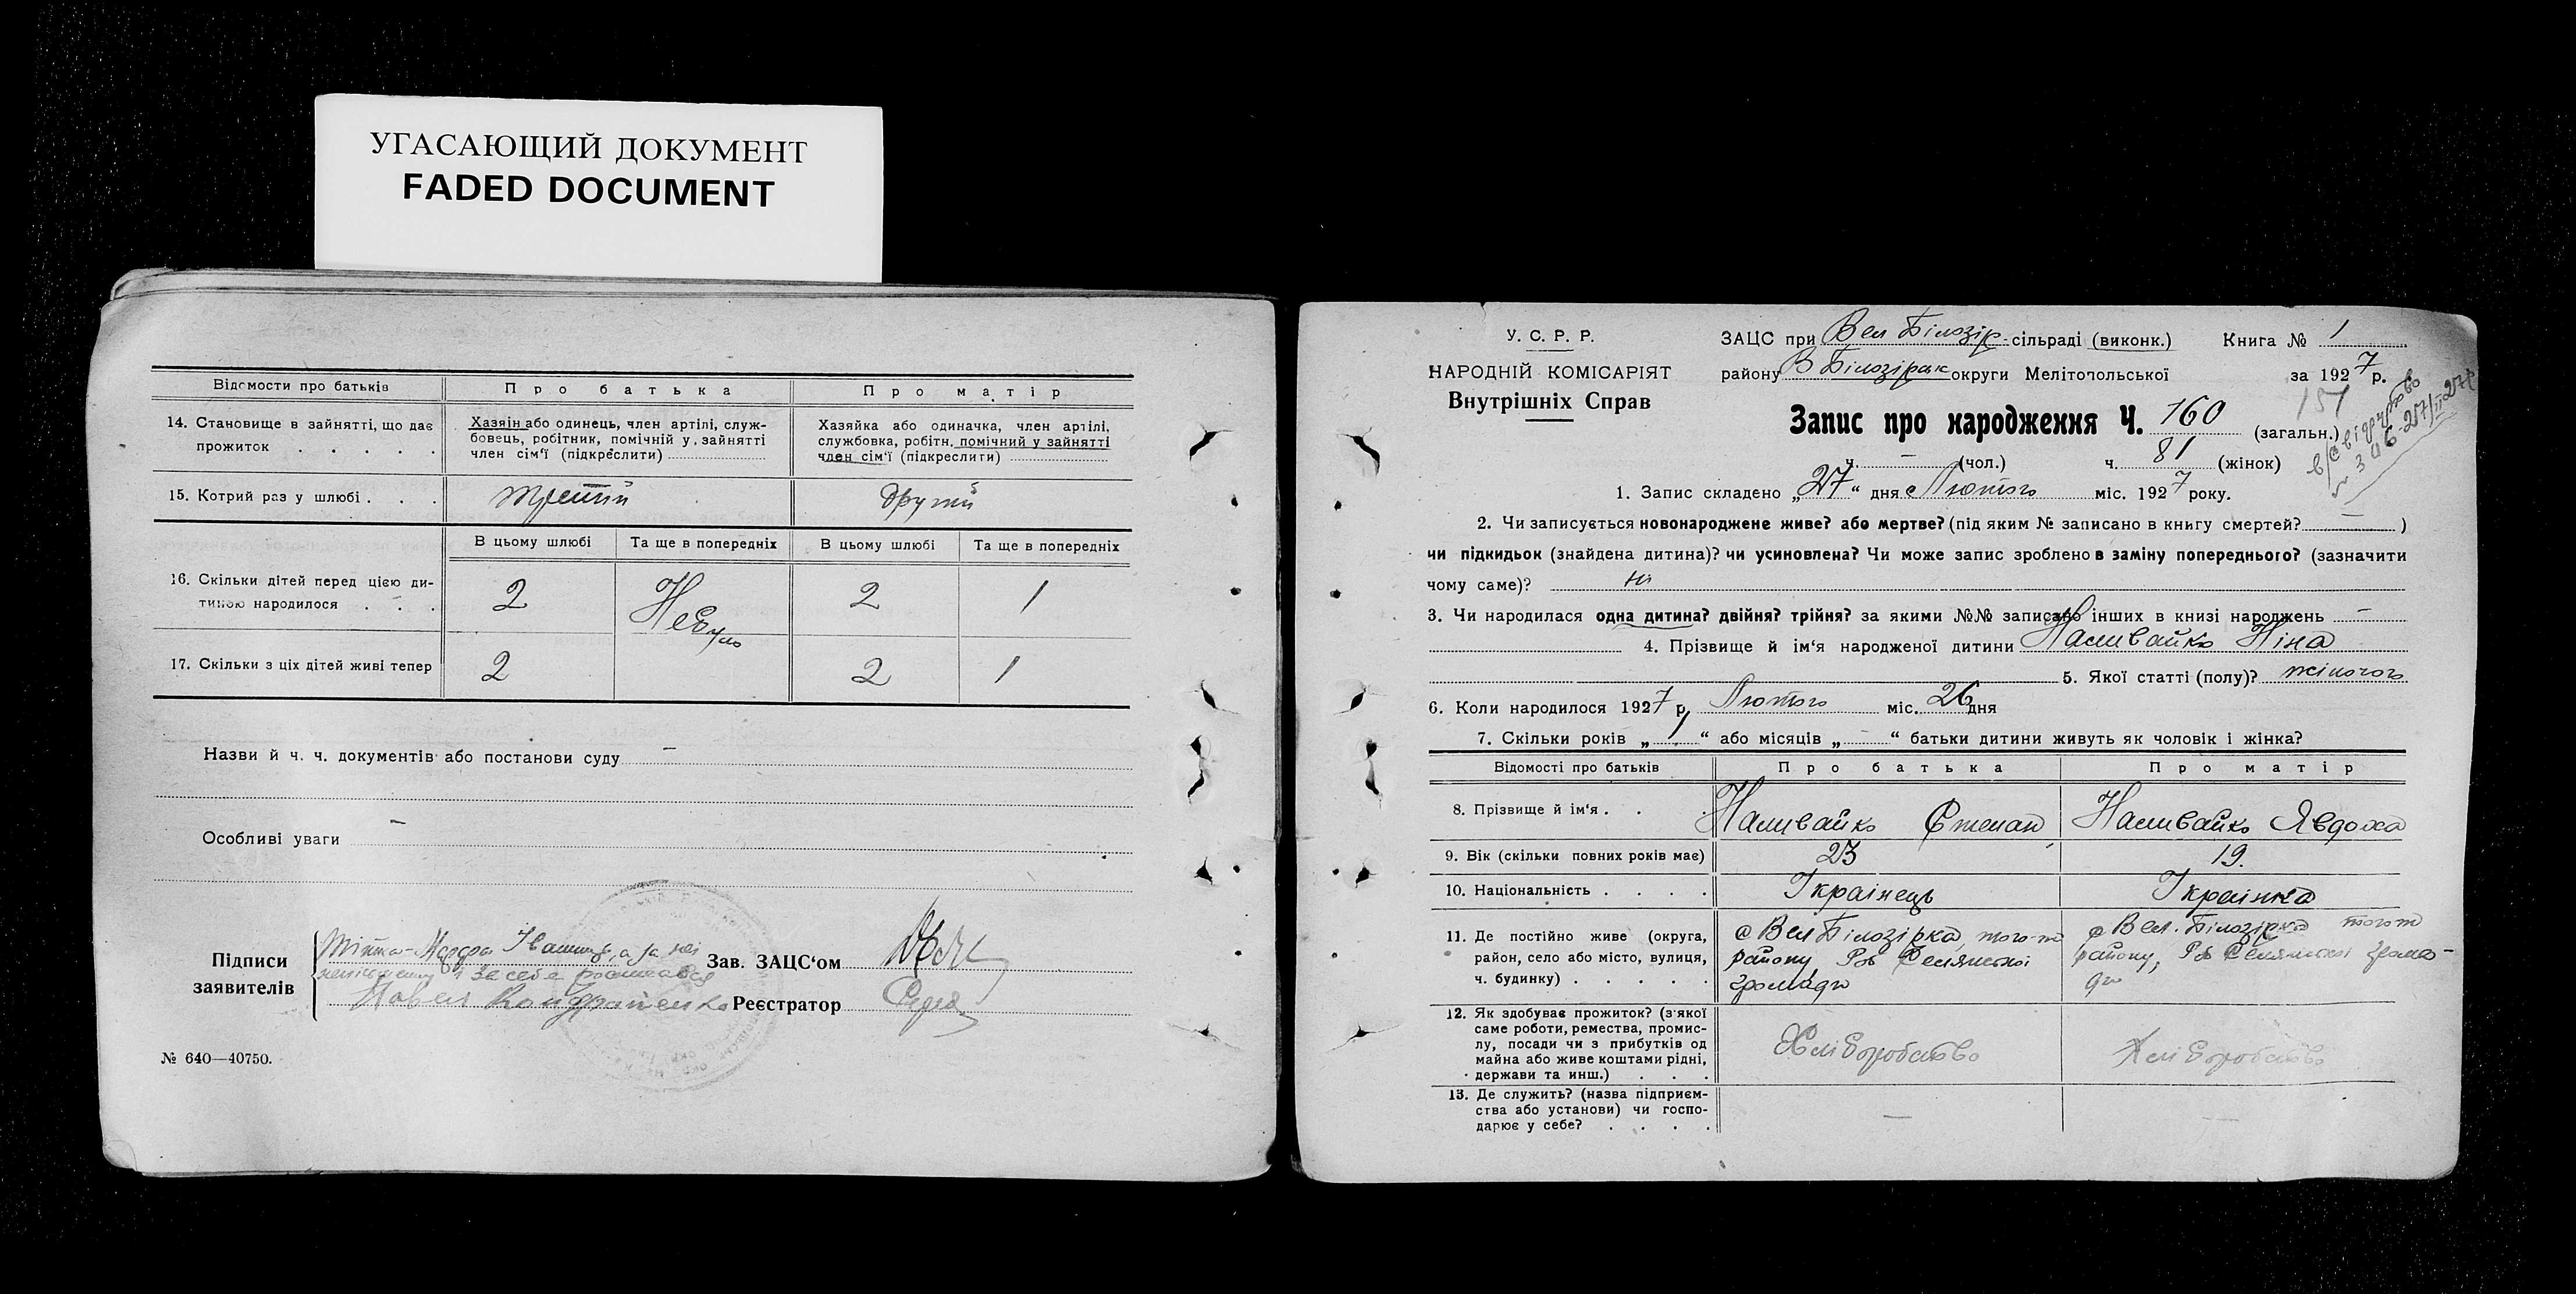 УГАСАЮЩИЙ ДОКУМЕНТ
FADED DOCUMENT
Відомости про батьків
Про батька
Про матір
14. Становище в зайнятті, що дає прожиток . . . . .
Хазяїн або одинець, член артілі, служ-
бовець, робітник, помічній у зайнятті
член сім'ї (підкреслити)
Хазяйка або одиначка, член артілі,
службовка, робітн. помічний у зайнятті
член сім'ї (підкреслити)
15. Котрий раз у шлюбі . . .
третій
другий
В цьому шлюбі
Та ще в попередніх
В цьому шлюбі
Та ще в попередніх
16. Скільки дітей перед цією ди-
тиною народилося . . .
2
Небуло
2
1
17. Скільки з ціх дітей живі тепер
2
2
1
Назви й ч. ч. документів або постанови суду —
Особливі уваги —
Підписи
заявителів
а за неї
неписьменну і за себе
Павел Кондратенко
Зав. ЗАЦС'ом
Реєстратор
№ 640—40750.
У. С. Р. Р.
НАРОДНІЙ КОМІСАРІЯТ
Внутрішніх Справ
ЗАЦС при Вел Білозір. сільраді (виконк.)
Книга № 1
району В Білозірськ округи Мелітопольської
за 1927 р.
151
Запис про народження Ч. 160 (загальн.)
ч. — (чол.) ч. 81 (жінок)
1. Запис складено „27“ дня Лютого міс. 1927 року.
2. Чи записується новонароджене живе? або мертве? (під яким № записано в книгу смертей? — )
чи підкидьок (знайдена дитина)? чи усиновлена? Чи може запис зроблено в заміну попереднього? (зазначити
чому саме)? ні
3. Чи народилася одна дитина? двійня? трійня? за якими №№ записано інших в книзі народжень —
4. Прізвище й ім'я народженої дитини Наливайко Ніна
5. Якої статті (полу)? жіночого
6. Коли народилося 1927 р. Лютого міс. 26 дня
7. Скільки років „1“ або місяців „—“ батьки дитини живуть як чоловік і жінка?
Відомості про батьків
Про батька
Про матір
8. Прізвище й ім'я . .
Наливайко Степан
Наливайко Явдоха
9. Вік (скільки повних років має)
23
19.
10. Національність . . . .
Українець
Українка
11. Де постійно живе (округа,
район, село або місто, вулиця,
ч. будинку) . . . . .
с Вел Білозірка, того-ж
району Роб Селянської
громади
с Вел. Білозірка того ж
району, Роб Селянської грома-
ди
12. Як здобуває прожиток? (з'якої
саме роботи, ремества, промис-
лу, посади чи з прибутків од
майна або живе коштами рідні,
держави та инш.) . . .
Хліборобство
Хліборобство
13. Де служить? (назва підприєм-
ства або установи) чи госпо-
дарює у себе? . . . .
—
—